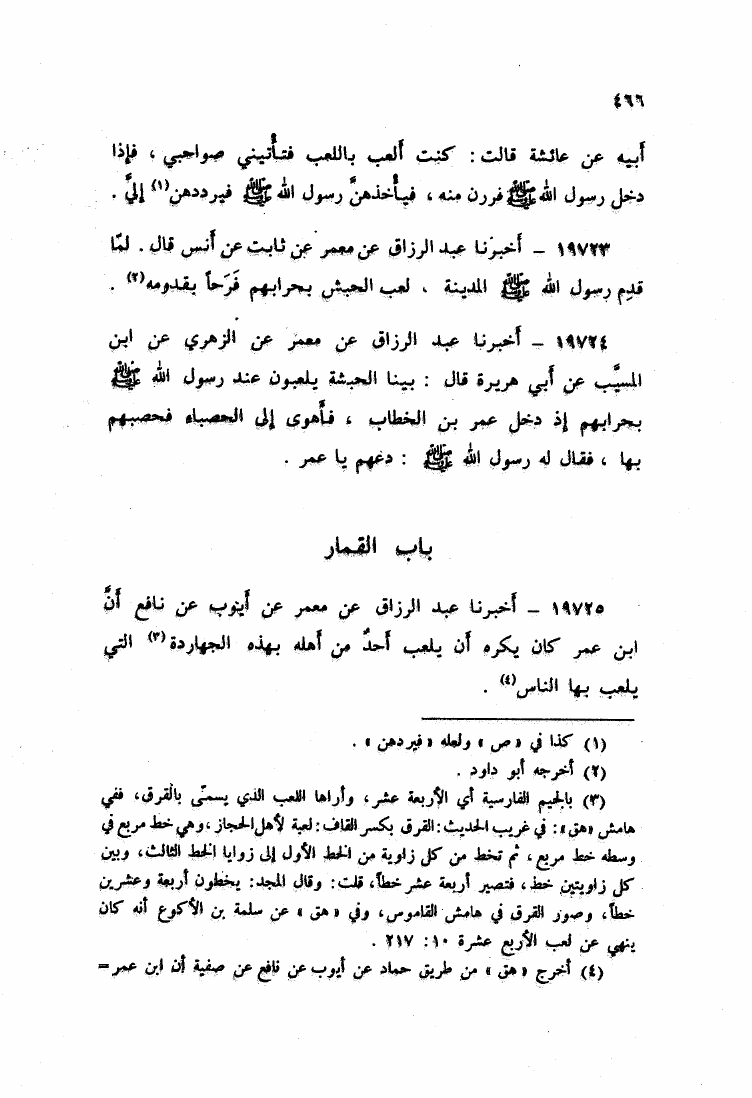 ٤٦٦
أبيه عن عائشة قالت : كنت ألعب باللعب فتأتيني صواحبي ، فإذا
دخل رسول الله ﷺ فررن منه ، فيأخذهنَّ رسول الله ﷺ فيرددهن(١) إليَّ .
١٩٧٢٣ – أخبرنا عبد الرزاق عن معمر عن ثابت عن أنس قال . لمّا
قدم رسول الله ﷺ المدينة ، لعب الحبش بحرابهم فَرَحاً بقدومه(٢) .
١٩٧٢٤ – أخبرنا عبد الرزاق عن معمر عن الزهري عن ابن
المسيَّب عن أبي هريرة قال : بينا الحبشة يلعبون عند رسول الله ﷺ
بحرابهم إذ دخل عمر بن الخطاب ، فأهوى إلى الحصباء فحصبهم
بها ، فقال له رسول الله ﷺ : دعهم يا عمر .
باب القمار
١٩٧٢٥ – أخبرنا عبد الرزاق عن معمر عن أيوب عن نافع أنَّ
ابن عمر كان يكره أن يلعب أحدٌ من أهله بهذه الجهاردة(٣) التي
يلعب بها الناس(٤) .
(١) كذا في « ص » ولعله « فيردهن » .
(٢) أخرجه أبو داود .
(٣) بالجيم الفارسية أي الأربعة عشر، وأراها اللعب الذي يسمّى بالقرق، ففي
هامش «هق»: في غريب الحديث: القرق بكسر القاف: لعبة لأهل الحجاز، وهي خط مربع في
وسطه خط مربع، ثم تخط من كل زاوية من الخط الأول إلى زوايا الخط الثالث، وبين
كل زاويتين خط، فتصير أربعة عشر خطاً، قلت: وقال المجد: يخطون أربعة وعشرين
خطاً، وصور القرق في هامش القاموس، وفي « هق » عن سلمة بن الأكوع أنه كان
ينهي عن لعب الأربع عشرة ١٠: ٢١٧ .
(٤) أخرج « هق » من طريق حماد عن أيوب عن نافع عن صفية أن ابن عمر =